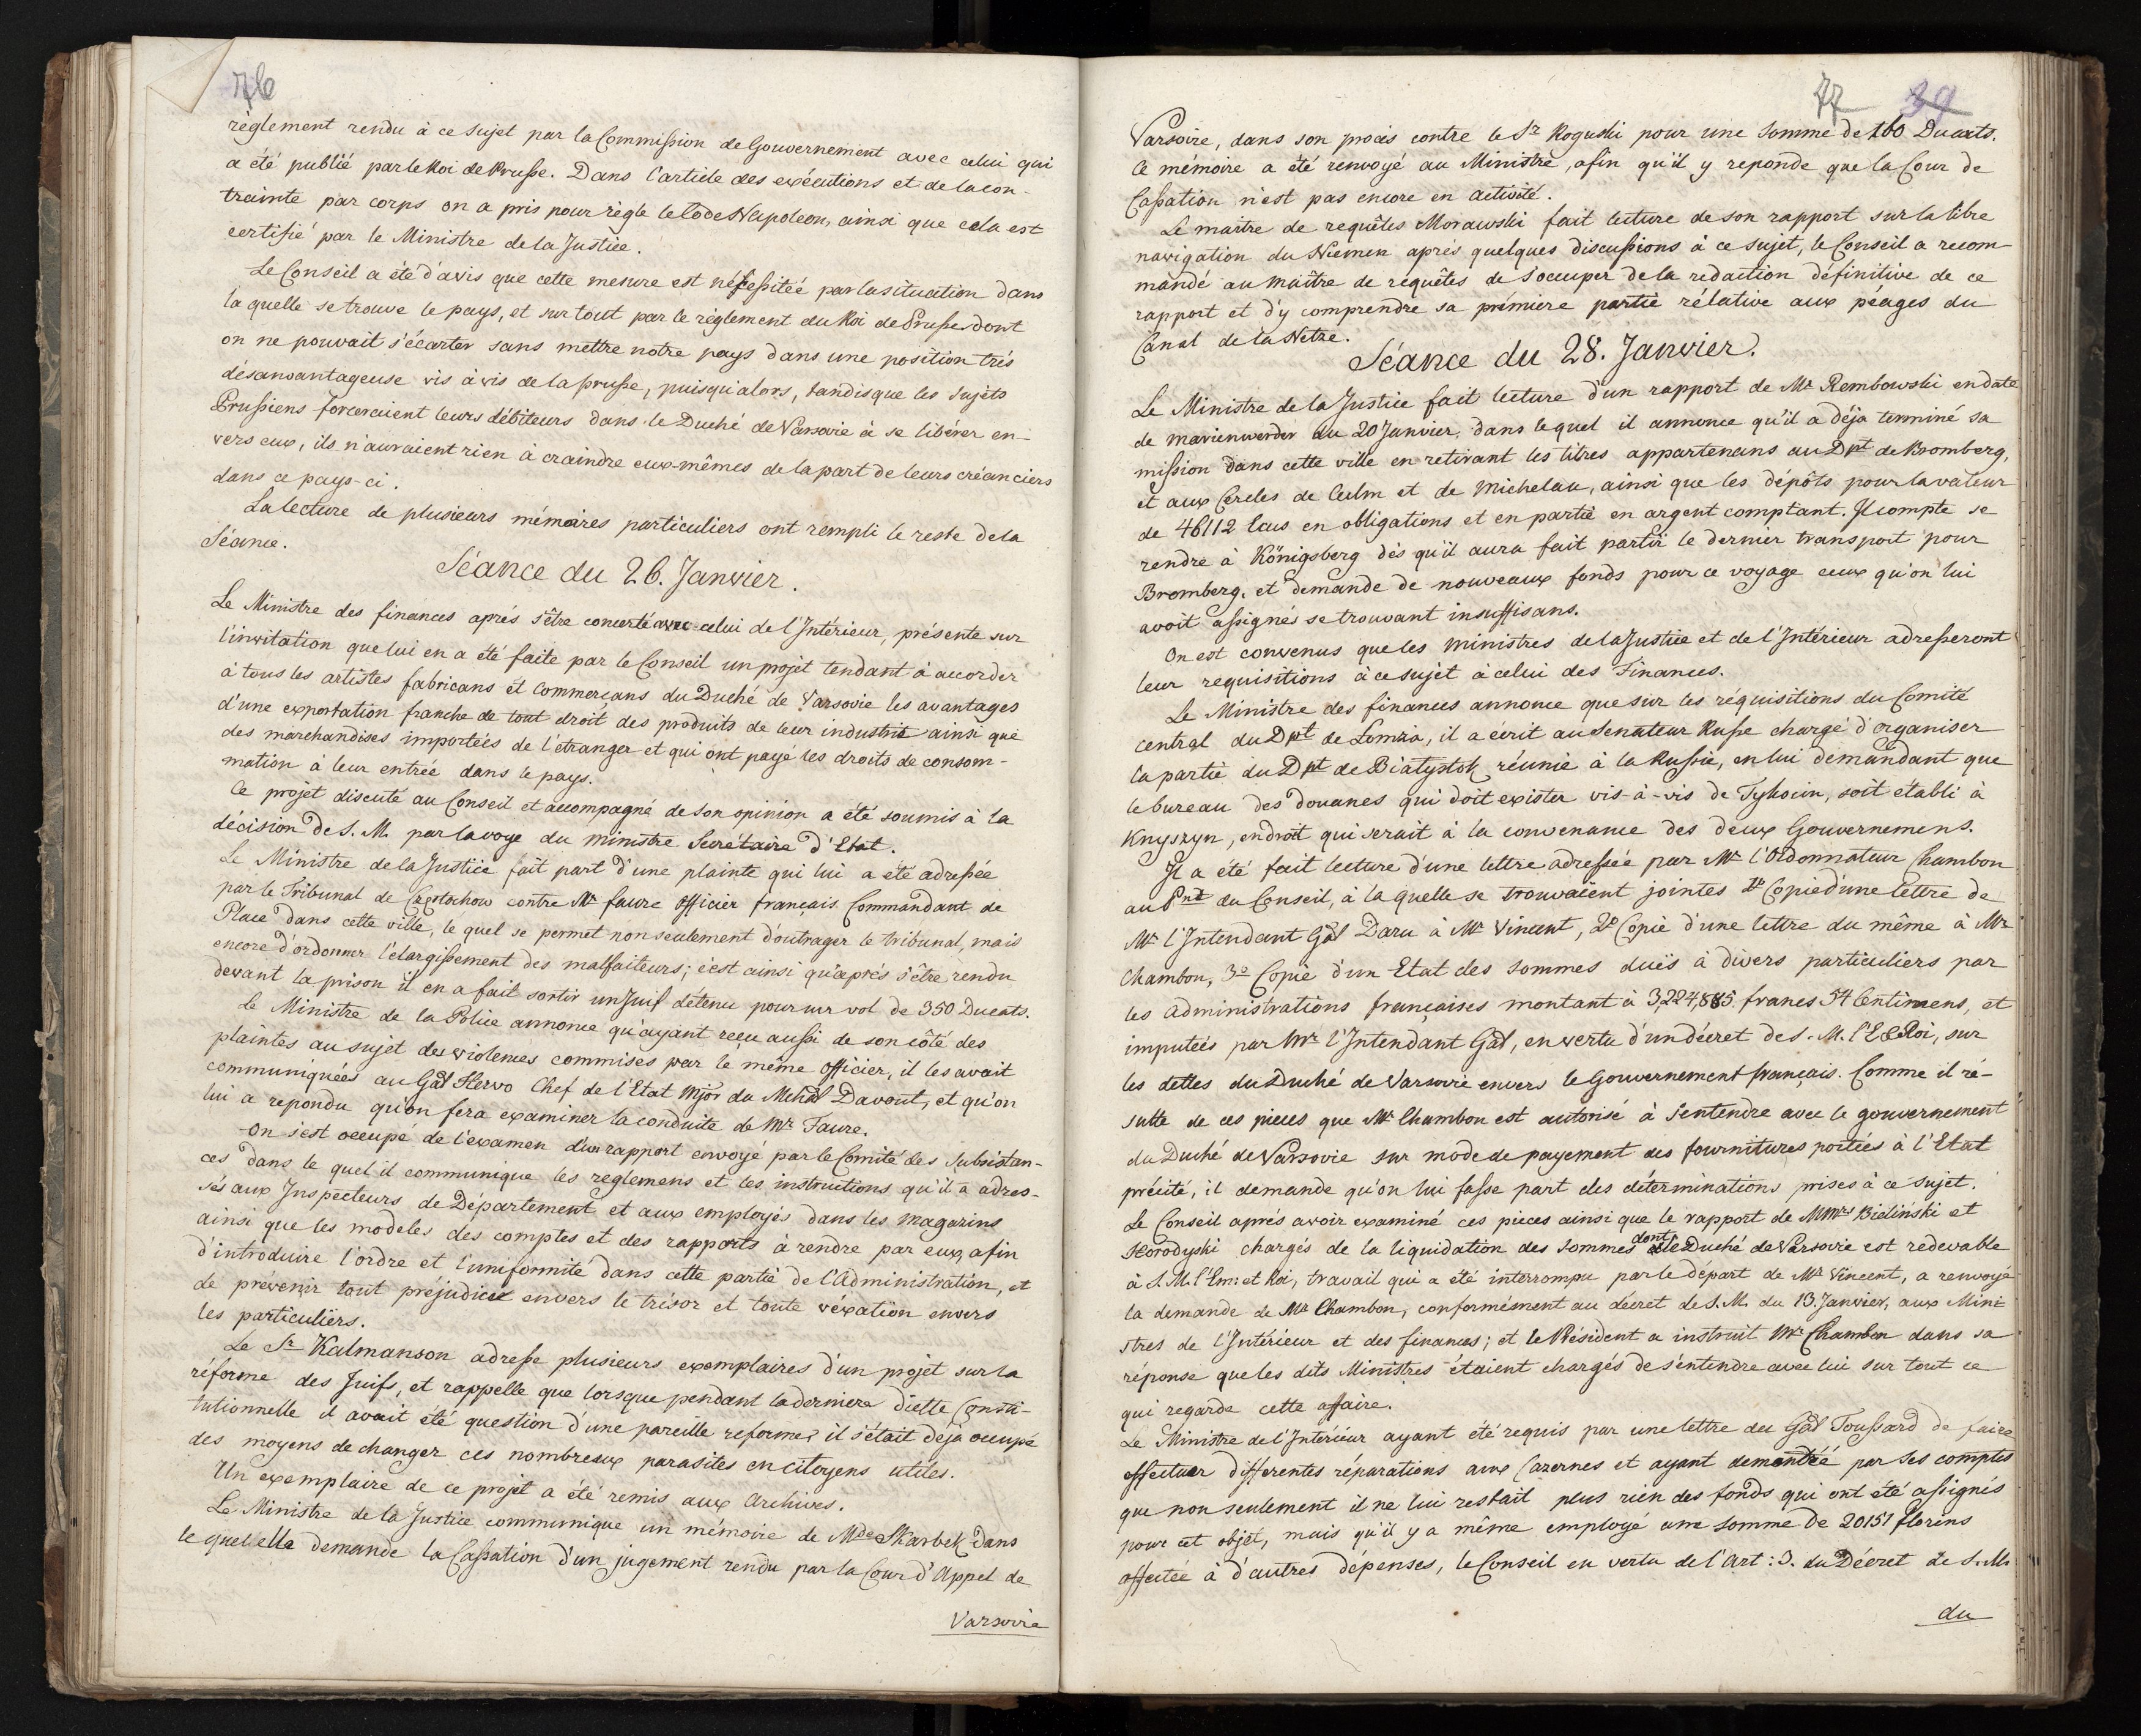 76
règlement rendu à ce sujet par la Commission de Gouvernement avec celui qui
a été publié par le Roi de Prusse. Dans l'article des exécutions et de la con-
trainte par corps on a pris pour règle le Code Napoleon, ainsi que cela est
certifié par le Ministre de la Justice.
Le Conseil a été d'avis que cette mesure est nécessitée par la situation dans
la quelle se trouve le pays, et sur tout par le règlement du Roi de Prusse dont
on ne pouvait s'écarter sans mettre notre pays dans une position très
désanvantageuse vis à vis de la prusse, puisqu'alors, tandisque les sujets
Prussiens forceraient leurs débiteurs dans le Duché de Varsovie à se libérer en-
vers eux, ils n'auraient rien à craindre eux-mêmes de la part de leurs créanciers
dans ce pays-ci.
La lecture de plusieurs mémoires particuliers ont rempli le reste de la
Séance.
Séance du 26. Janvier.
Le Ministre des finances après s'être concerté avec celui de l'Intérieur, présente sur
l'invitation que lui en a été faite par le Conseil un projet tendant à accorder
à tous les artistes fabricans et Commerçans du Duché de Varsovie les avantages
d'une exportation franche de tout droit des produits de leur industrie ainsi que
des marchandises importées de l'étranger et qui ont payé les droits de consom-
mation à leur entrée dans le pays.
Ce projet discuté au Conseil et accompagné de son opinion a été soumis à la
décision de S. M. par la voye du ministre Secrétaire d'Etat.
Le Ministre de la Justice fait part d'une plainte qui lui a été adressée
par le Tribunal de Częstochow contre Mr faure officier français Commandant de
Place dans cette ville, le quel se permet non seulement d'outrager le tribunal, mais
encore d'ordonner l'élargissement des malfaiteurs; c'est ainsi qu'après s'être rendu
devant la prison il en a fait sortir un Juif détenu pour un vol de 350 Ducats.
Le Ministre de la Police annonce qu'ayant reçu aussi de son côté des
plaintes au sujet des violences commises par le même officier, il les avait
communiquées au Gal Hervo Chef de l'Etat Mjor du Mchal Davout, et qu'on
lui a repondu qu'on fera examiner la conduite de Mr Faure.
On s'est occupé de l'examen d'un rapport envoyé par le Comité des Subsistan-
ces dans le quel il communique les reglemens et les instructions qu'il a adres-
sés aux Inspecteurs de Département et aux employés dans les magazins
ainsi que les modeles des comptes et des rapports à rendre par eux, afin
d'introduire l'ordre et l'uniformité dans cette partie de l'Administration, et
de prévenir tout préjudice envers le trésor et toute véxation envers
les particuliers.
Le Sr Kalmanson adresse plusieurs exemplaires d'un projet sur la
réforme des Juifs, et rappelle que lorsque pendant la derniere diette Consti-
tutionnelle il avait été question d'une pareille reforme, il s'était déja occupé
des moyens de changer ces nombreux parasites en Citoyens utiles.
Un exemplaire de ce projet a été remis aux Archives.
Le Ministre de la Justice communique un mémoire de Mde Skarbek, dans
le quel elle demande la Cassation d'un jugement rendu par la Cour d'Appel de
Varsovie
77 39
Varsovie, dans son procès contre le Sr Roguski pour une somme de 160 Ducats.
Ce mémoire a été renvoyé au Ministre, afin qu'il y reponde que la Cour de
Cassation n'est pas encore en activité.
Le maître de requêtes Morawski fait lecture de son rapport sur la libre
navigation du Niemen après quelques discussions à ce sujet, le Conseil a recom-
mandé au maître de requêtes de s'occuper de la redaction définitive de ce
rapport et d'y comprendre sa prémiere partie rélative aux péages du
Canal de la Netze.
Séance du 28. Janvier.
Le Ministre de la Justice fait lecture d'un rapport de Mr Rembowski en date
de marienwerder du 20 Janvier, dans le quel il annonce qu'il a déja terminé sa
mission dans cette ville en retirant les titres appartenans au Dpt de Bromberg,
et aux Cercles de Culm et de Michelau, ainsi que les dépôts pour la valeur
de 46112 écus en obligations et en partie en argent comptant. Il compte se
rendre à Königsberg dès qu'il aura fait partir le dernier transport pour
Bromberg, et demande de nouveaux fonds pour ce voyage ceux qu'on lui
avoit assignés se trouvant insuffisans.
On est convenus que les ministres de la Justice et de l'Intérieur adresseront
leur requisitions à ce sujet à celui des Finances.
Le Ministre des finances annonce que sur les réquisitions du Comité
central du Dpt de Lomża, il a écrit au Senateur Russe chargé d'organiser
la partie du Dpt de Białystok réunie à la Russie, en lui demandant que
le bureau des douanes qui doit exister vis-à-vis de Tykocin, soit établi à
Knyszyn, endroit qui serait à la convenance des deux Gouvernemens.
Il a été fait lecture d'une lettre adressée par Mr l'Ordonnateur Chambon
au Pnt du Conseil, à la quelle se trouvaient jointes 1o Copie d'une lettre de
Mr l'Intendant Gal Daru à Mr Vincent, 2o Copie d'une lettre du même à Mr
Chambon, 3o Copie d'un Etat des sommes dues à divers particuliers par
les administrations françaises montant à 3,224,885 francs 54 Centimens, et
imputées par Mr l'Intendant Gal, en vertu d'un décret de S. M. l'E et Roi, sur
les dettes du Duché de Varsovie envers le Gouvernement français. Comme il ré-
sulte de ces pieces que Mr Chambon est autorisé à s'entendre avec le gouvernement
du Duché de Varsovie sur mode de payement des fournitures portées à l'Etat
précité, il demande qu'on lui fasse part des déterminations prises à ce sujet.
Le Conseil après avoir examiné ces pieces ainsi que le rapport de Mmrs Bieliński et
Horodyski chargés de la liquidation des sommes dont le Duché de Varsovie est redevable
à S. M. l'Em: et Roi, travail qui a été interrompu par le départ de Mr Vincent, a renvoyé
la demande de Mr Chambon, conformément au décret de S. M. du 13. Janvier, aux Mini-
stres de l'Intérieur et des finances; et le Président a instruit Mr Chambon dans sa
réponse que les dits Ministres étaient chargés de s'entendre avec lui sur tout ce
qui regarde cette affaire.
Le Ministre de l'Intérieur ayant été requis par une lettre du Gal Toussard de faire
effectuer differentes réparations aux Cazernes et ayant par ses comptes
que non seulement il ne lui restait plus rien des fonds qui ont été assignés
pour cet objet, mais qu'il y a même employé une somme de 20151 florins
affectée à d'autres dépenses, le Conseil en vertu de l'Art: 3. du Décret de S. M.
du